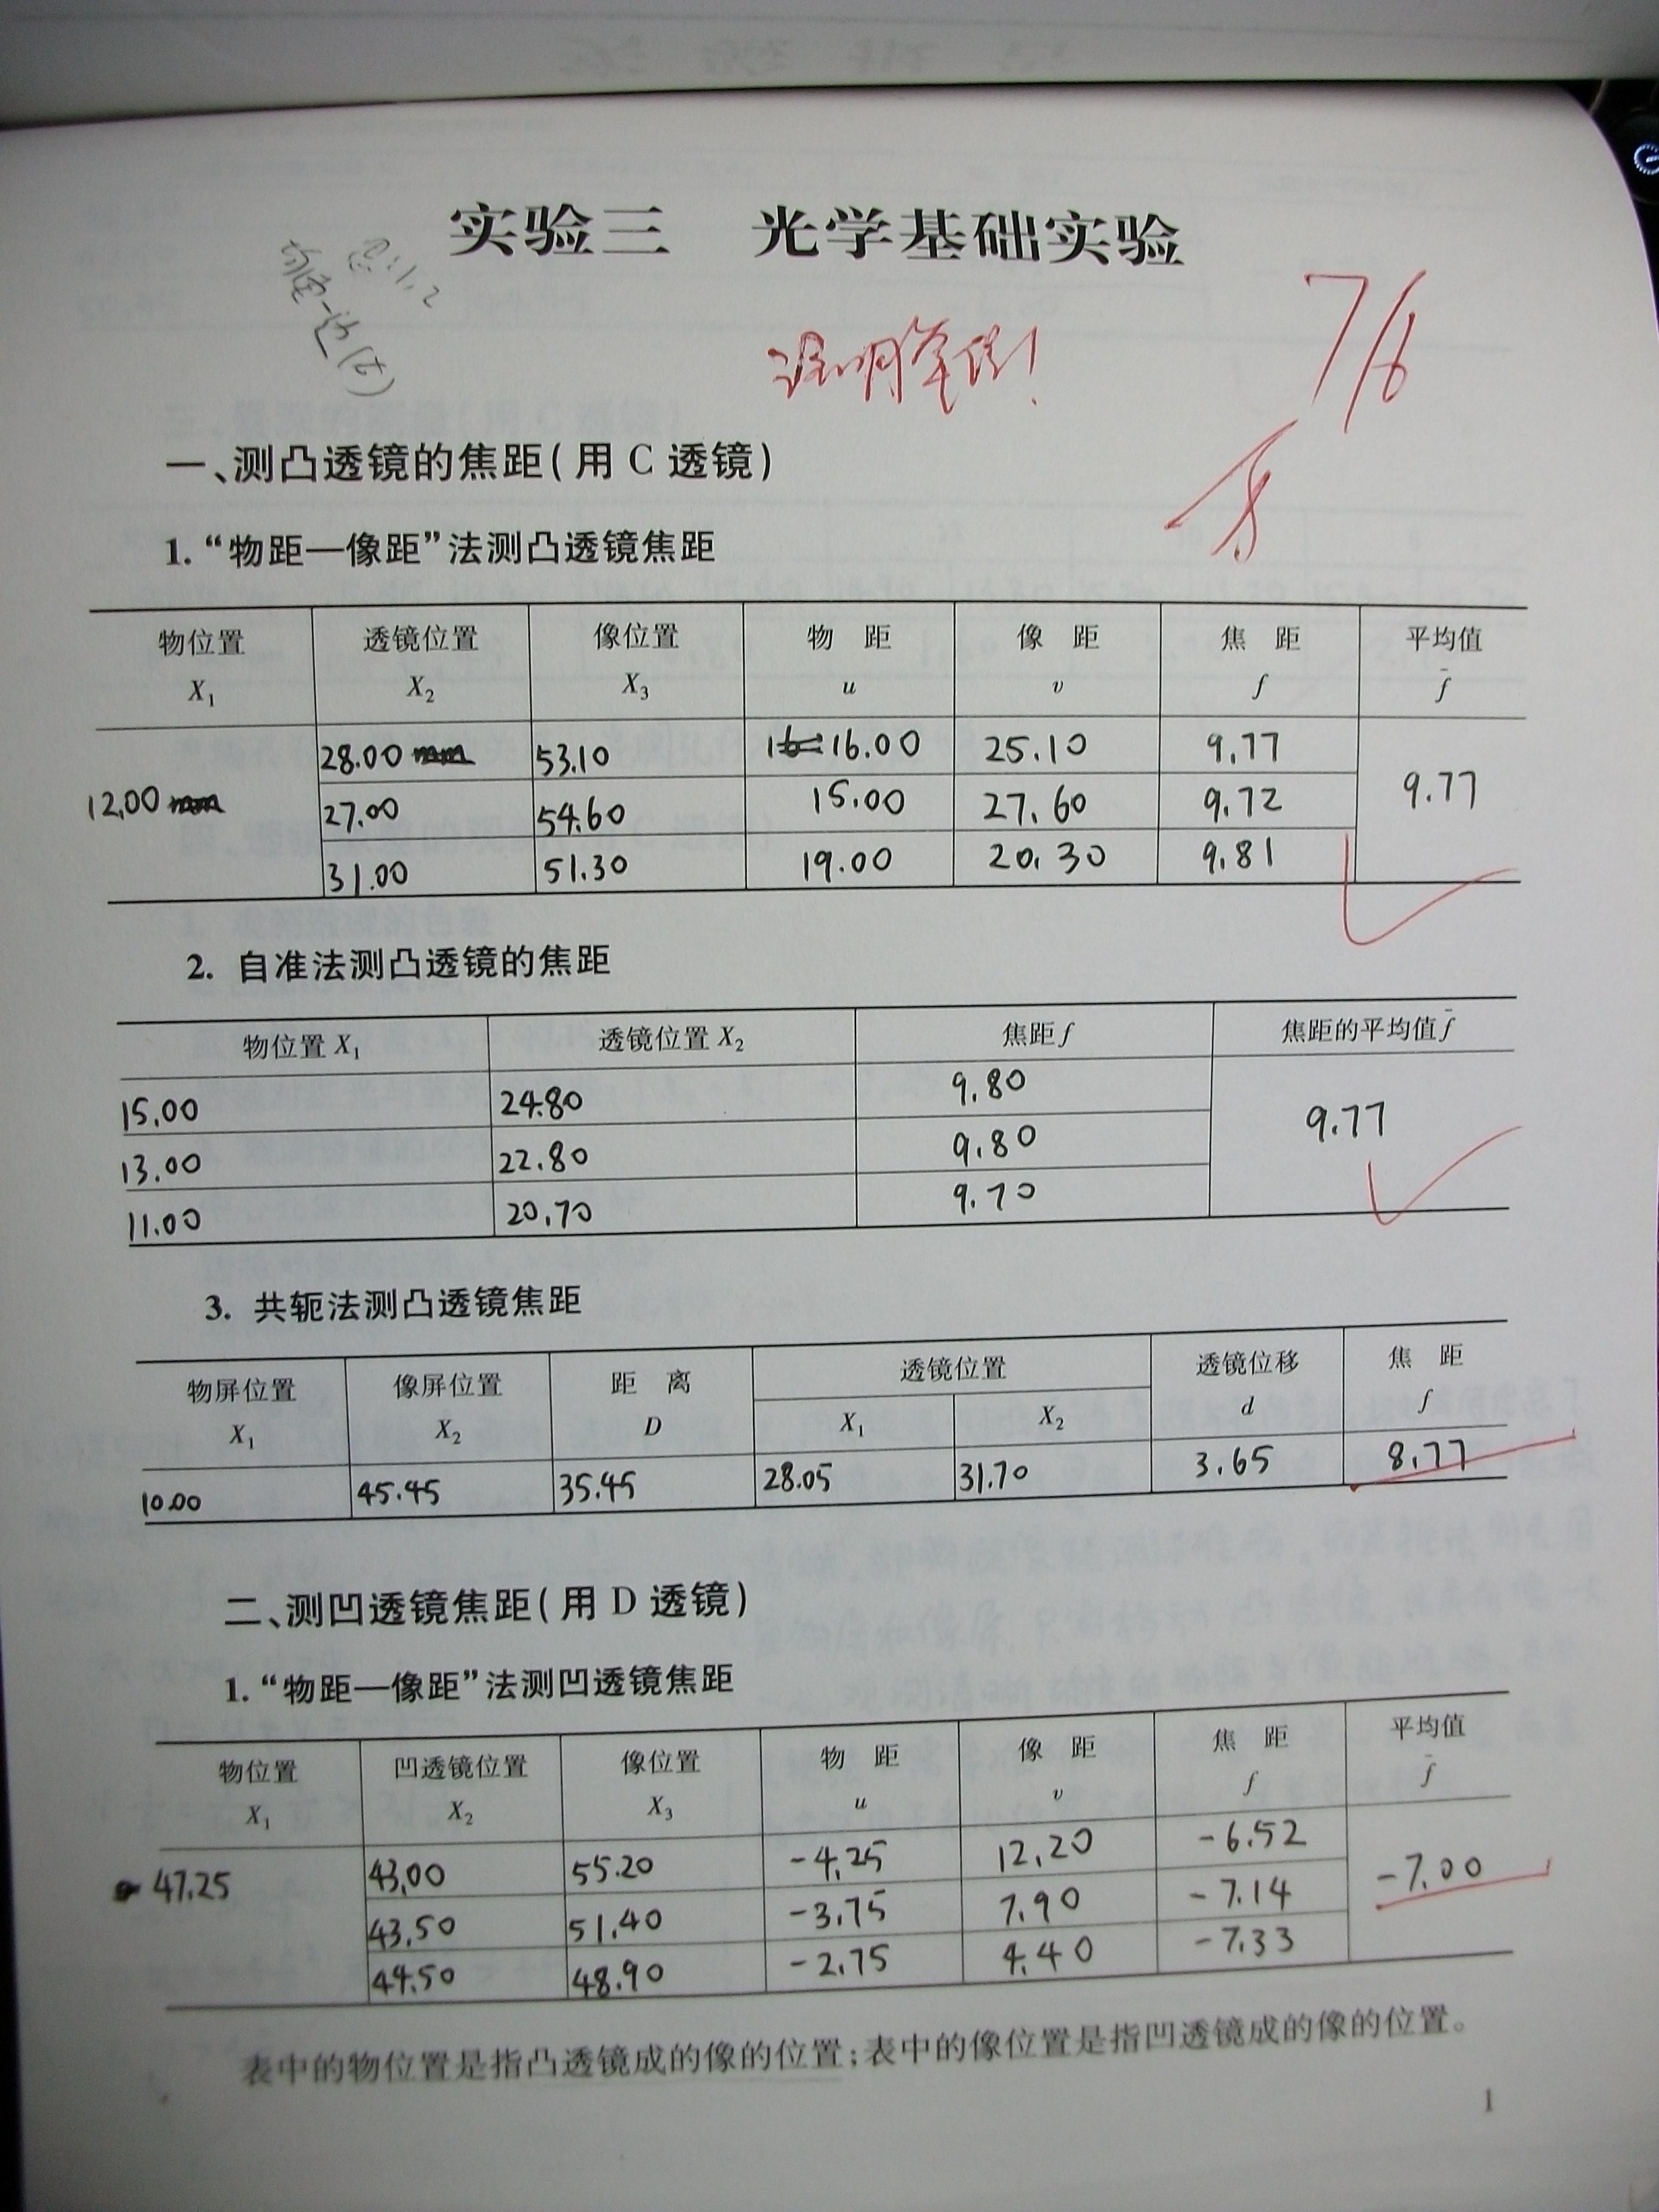 实验三 光学基础实验
注明单位!
7/6
一、测凸透镜的焦距(用 C 透镜)
1. “物距—像距”法测凸透镜焦距
物位置 透镜位置 像位置 物 距 像 距 焦 距 平均值
X₁ X₂ X₃ u v f f̄
28.00 53.10 16.00 25.10 9.77
12.00 27.00 54.60 15.00 27.60 9.72 9.77
31.00 51.30 19.00 20.30 9.81
2. 自准法测凸透镜的焦距
物位置 X₁ 透镜位置 X₂ 焦距 f 焦距的平均值 f̄
15.00 24.80 9.80
13.00 22.80 9.80 9.77
11.00 20.70 9.70
3. 共轭法测凸透镜焦距
物屏位置 像屏位置 距 离 透镜位置 透镜位移 焦 距
X₁ X₂ D X₁ X₂ d f
10.00 45.45 35.45 28.05 31.70 3.65 8.77
二、测凹透镜焦距(用 D 透镜)
1. “物距—像距”法测凹透镜焦距
物位置 凹透镜位置 像位置 物 距 像 距 焦 距 平均值
X₁ X₂ X₃ u v f f̄
47.25 43.00 55.20 -4.25 12.20 -6.52 -7.00
43.50 51.40 -3.75 7.90 -7.14
44.50 48.90 -2.75 4.40 -7.33
表中的物位置是指凸透镜成的像的位置;表中的像位置是指凹透镜成的像的位置。
1